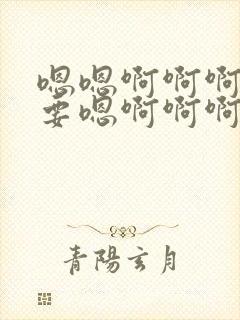 嗯嗯啊啊啊
要嗯啊啊啊
青陽玄月